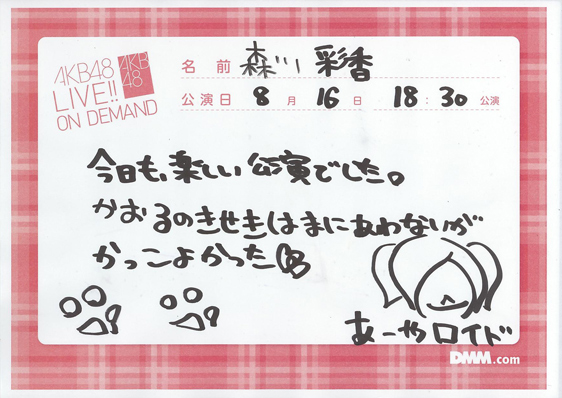 AKB48
LIVE!!
ON DEMAND
AKB
48
名前 森川 彩香
公演日 8月16日 18:30公演
今日も、楽しい公演でした。
かおるのきせきはまにあわないが
かっこよかった
あーやロイド
DMM.com